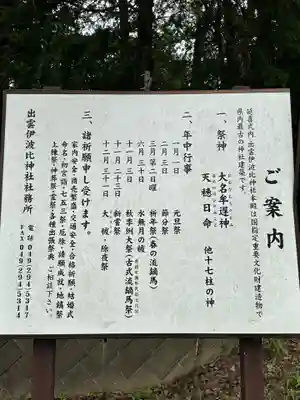 ご案内
延喜式内 出雲伊波比神社本殿は国指定重要文化財建造物で
県内最古の神社建築です。
一、祭神
大名牟遅神
天穂日命 他十七柱の神
二、年中行事
一月一日 元旦祭
二月三日 節分祭
三月第二日曜 祈年祭(春の流鏑馬)
六月三十日 水無月の祓
十一月三日 秋季例大祭(古式流鏑馬祭)
十一月二十三日 新嘗祭
十二月三十一日 大祓・除夜祭
三、諸祈願申し受けます。
家内安全・商売繁盛・交通安全・合格祈願・結婚式
命名・初宮詣・七五三祭・厄除・諸願成就・地鎮祭
上棟祭・神葬祭・霊祭・各種出張祭典 ご相談下さい。
出雲伊波比神社社務所
電話 049-294-5317
FAX 049-294-5314